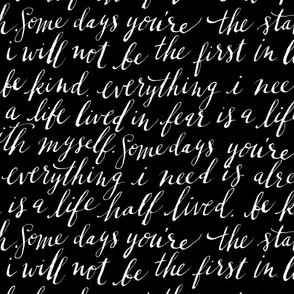 h. Some days you're the sta
i will not be the first in l
be kind. everything i nee
a life lived in fear is a lif
ith myself. Some days you're
everything i need is alre
is a life half lived. be k
h. Some days you're the sta
i will not be the first in l